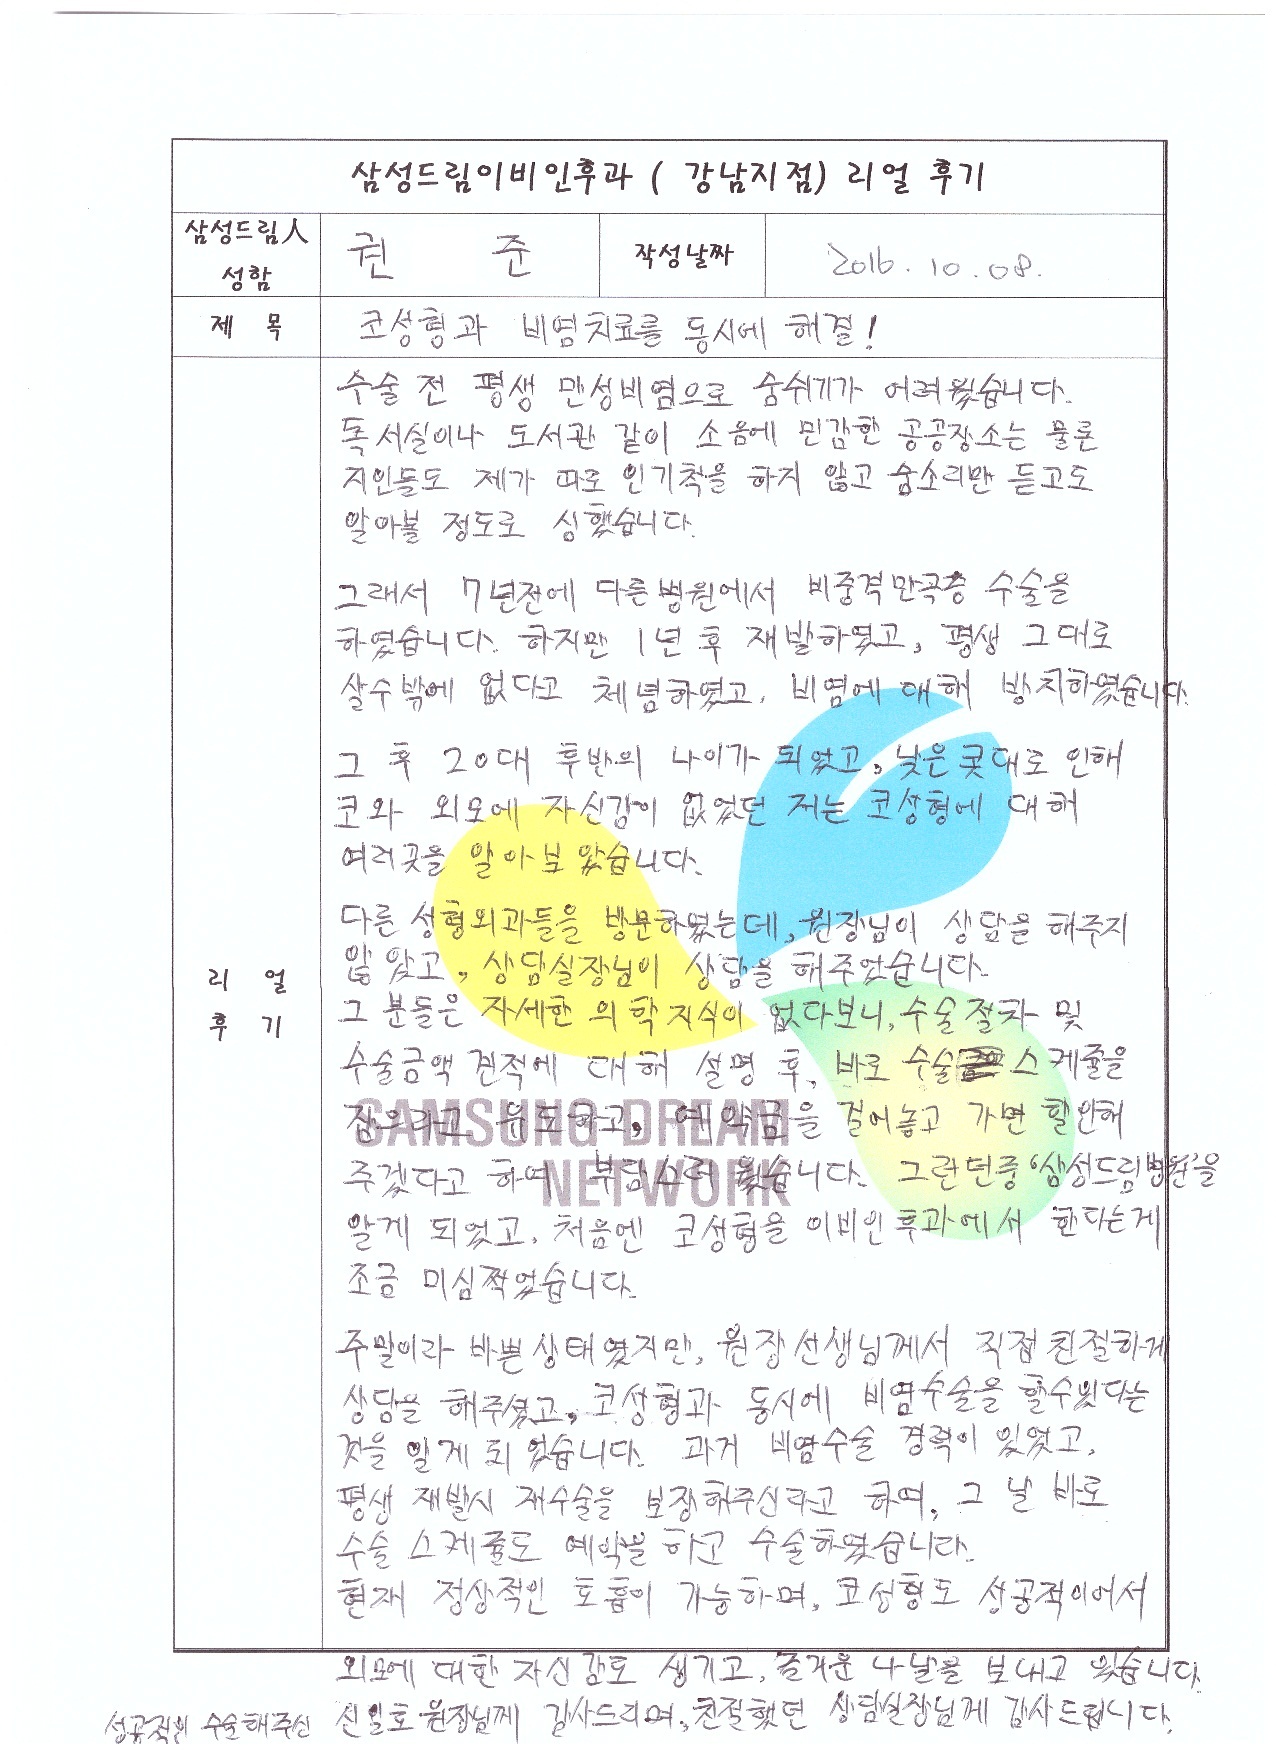 삼성드림이비인후과 ( 강남지점) 리얼 후기
삼성드림人 성함
권 준
작성날짜
2016. 10. 08.
제 목
코성형과 비염치료를 동시에 해결!
리 얼
후 기
수술 전 평생 만성비염으로 숨쉬기가 어려웠습니다.
독서실이나 도서관 같이 소음에 민감한 공공장소는 물론
지인들도 제가 따로 인기척을 하지 않고 숨소리만 듣고도
알아볼 정도로 심했습니다.
그래서 7년전에 다른병원에서 비중격만곡증 수술을
하였습니다. 하지만 1년 후 재발하였고, 평생 그대로
살수밖에 없다고 체념하였고, 비염에 대해 방치하였습니다.
그 후 20대 후반의 나이가 되었고, 낮은 콧대로 인해
코와 외모에 자신감이 없었던 저는 코성형에 대해
여러곳을 알아보았습니다.
다른 성형외과들을 방문하였는데, 원장님이 상담을 해주지
않았고, 상담실장님이 상담을 해주었습니다.
그 분들은 자세한 의학지식이 없다보니, 수술절차 및
수술금액 견적에 대해 설명 후, 바로 수술 스케쥴을
잡으라고 유도하고, 예약금을 걸어놓고 가면 할인해
주겠다고 하여 부담스러웠습니다. 그런던중 '삼성드림병원'을
알게 되었고, 처음엔 코성형을 이비인후과에서 한다는게
조금 미심쩍었습니다.
주말이라 바쁜상태였지만, 원장선생님께서 직접 친절하게
상담을 해주셨고, 코성형과 동시에 비염수술을 할수있다는
것을 알게되었습니다. 과거 비염수술 경력이 있었고,
평생 재발시 재수술을 보장해주신라고 하며, 그 날 바로
수술 스케쥴도 예약을 하고 수술하였습니다.
현재 정상적인 호흡이 가능하며, 코성형도 성공적이어서
외모에 대한 자신감도 생기고, 즐거운 나날을 보내고 있습니다.
성공적인 수술해주신 신일호원장님께 감사드리며, 친절했던 상담실장님께 감사드립니다.
SAMSUNG DREAM
NETWORK